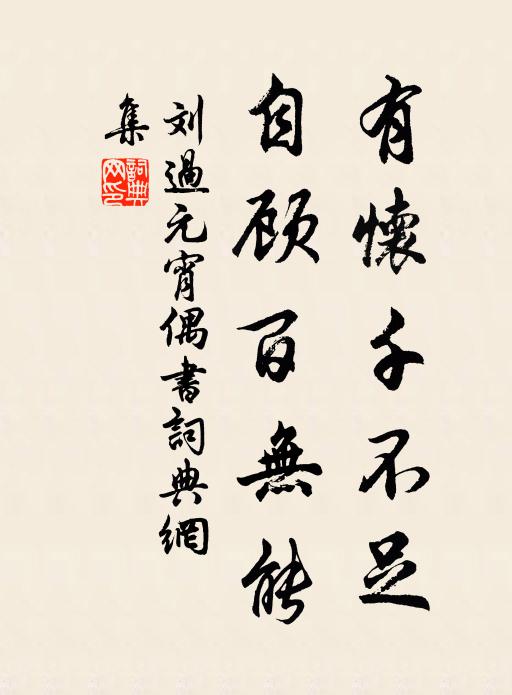 有懷千不足
自顾百無能
刘過元宵偶書詞典網
集
詞典
网印